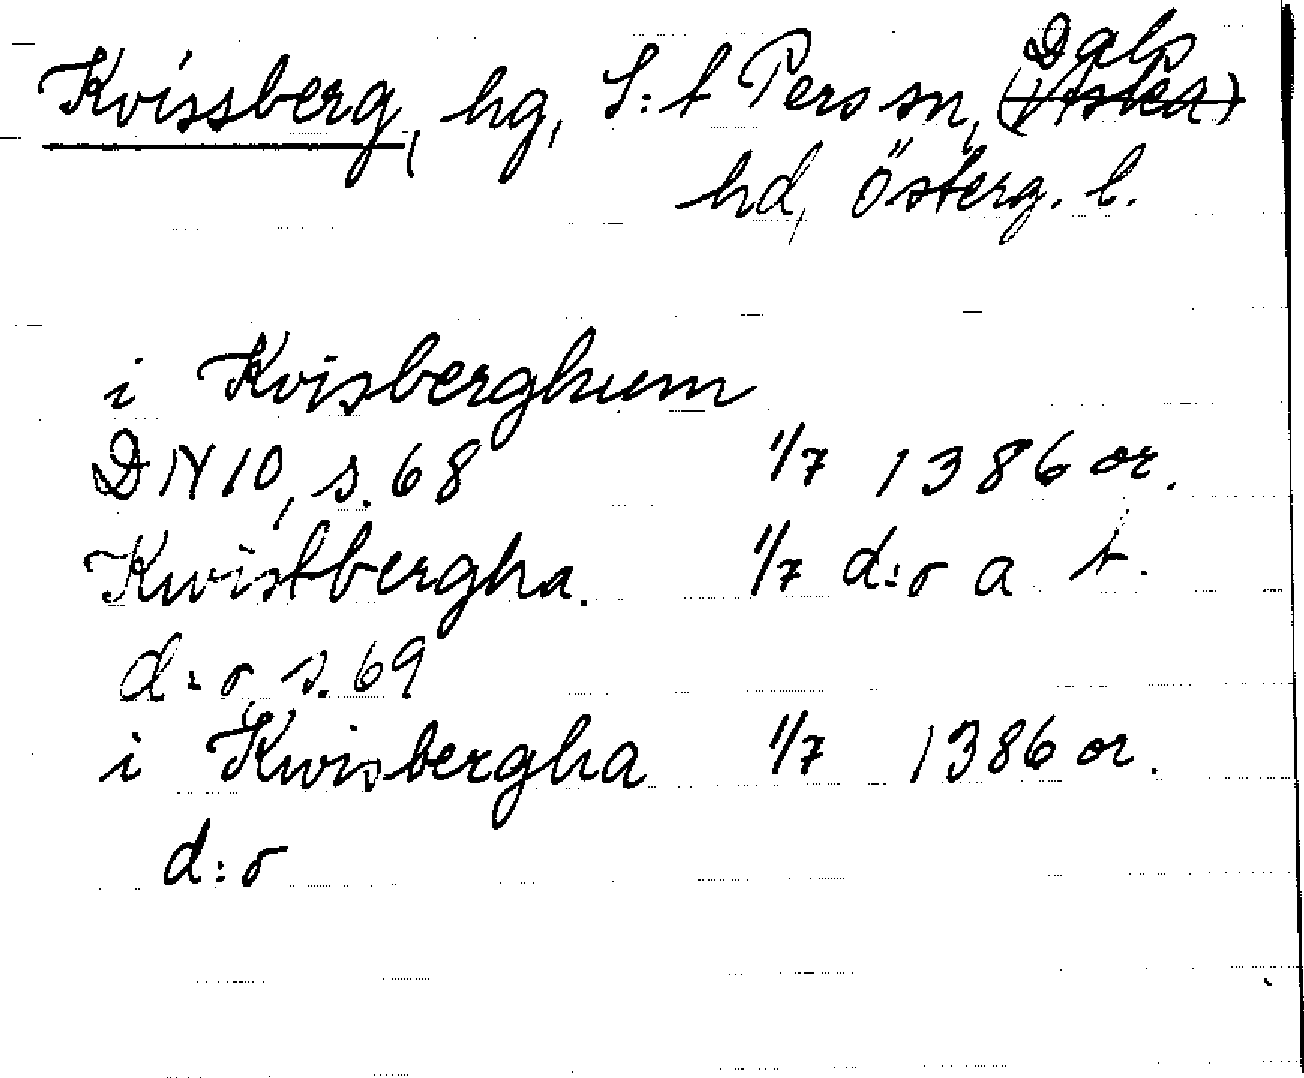 Kvissberg, hg, S:t Pers sn, Dals
hd, Österg. l.
i Kvisberghum
DN 10, s. 68 1/7 1386 or.
Kwistbergha. 1/7 d:o a t.
d:o, s. 69
i Kwisbergha 1/7 1386 or.
d:o